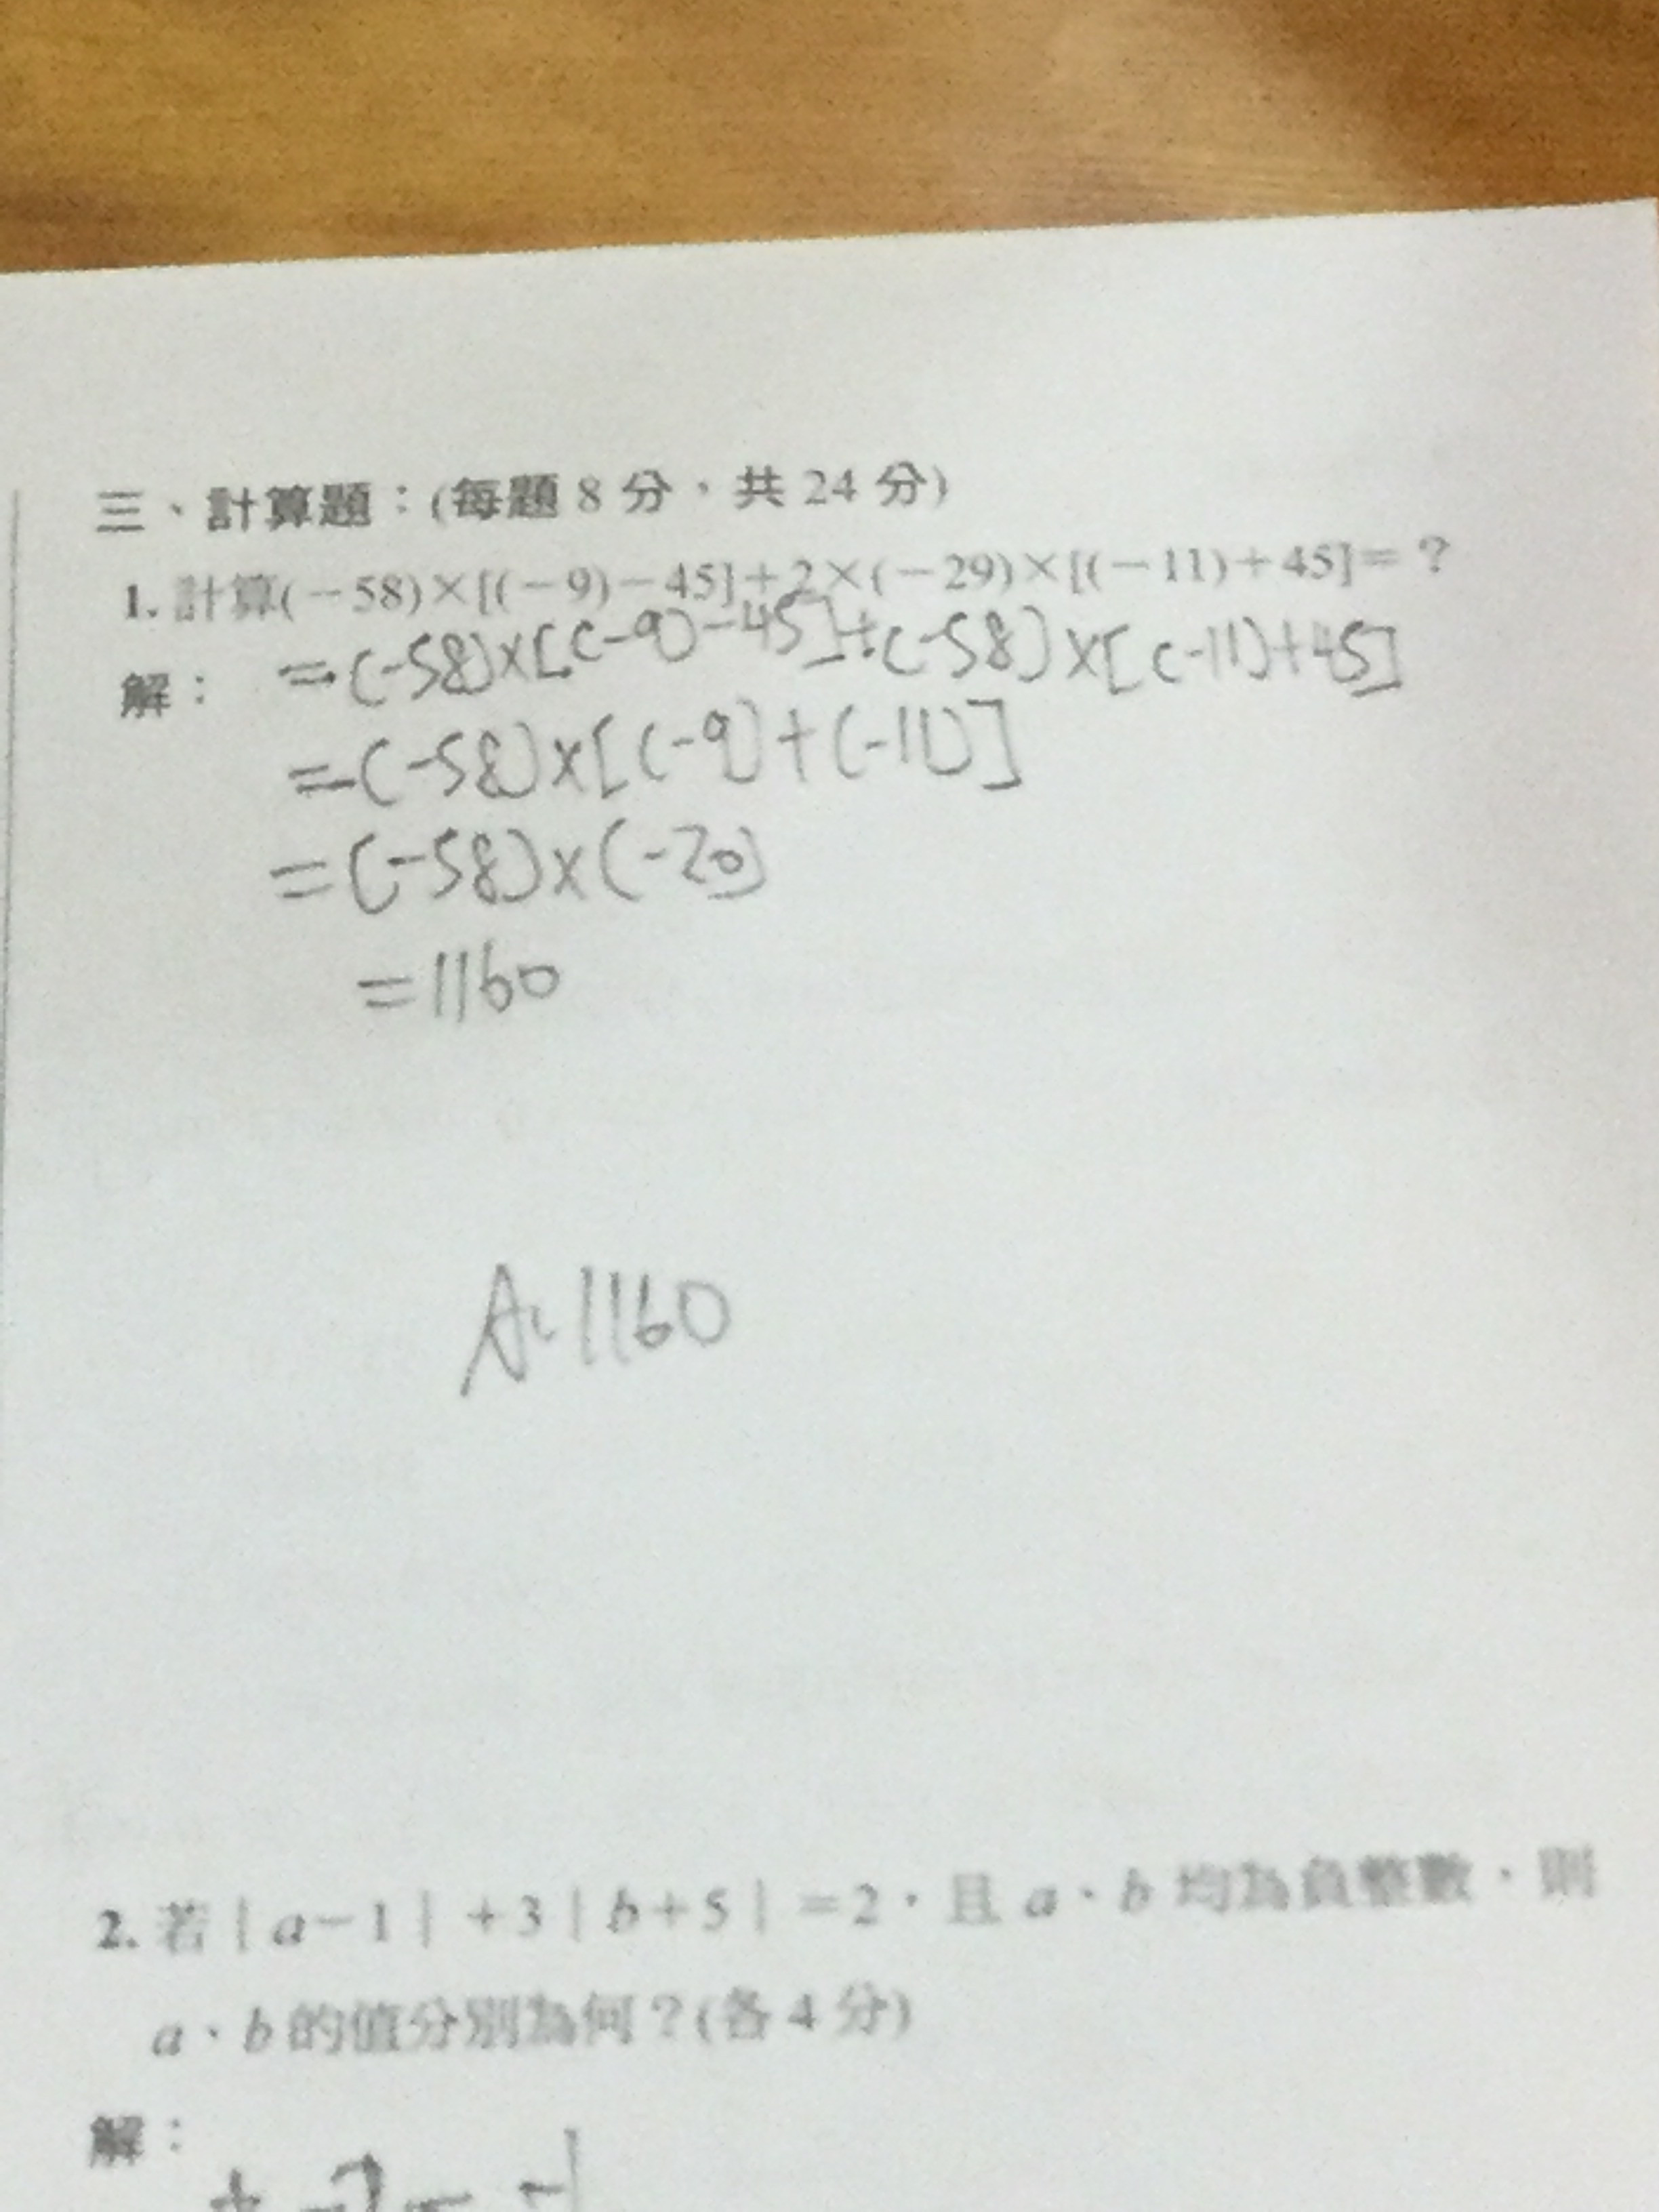 三、計算題：(每題 8 分，共 24 分)
1. 計算(－58)×[(－9)－45]＋2×(－29)×[(－11)＋45]＝？
解： =(-58)×[(-9)-45]+(-58)×[(-11)+45]
=(-58)×[(-9)+(-11)]
=(-58)×(-20)
=1160
A:1160
2. 若｜a－1｜＋3｜b＋5｜＝2，且 a、b 均為負整數，則
a、b 的值分別為何？(各 4 分)
解：